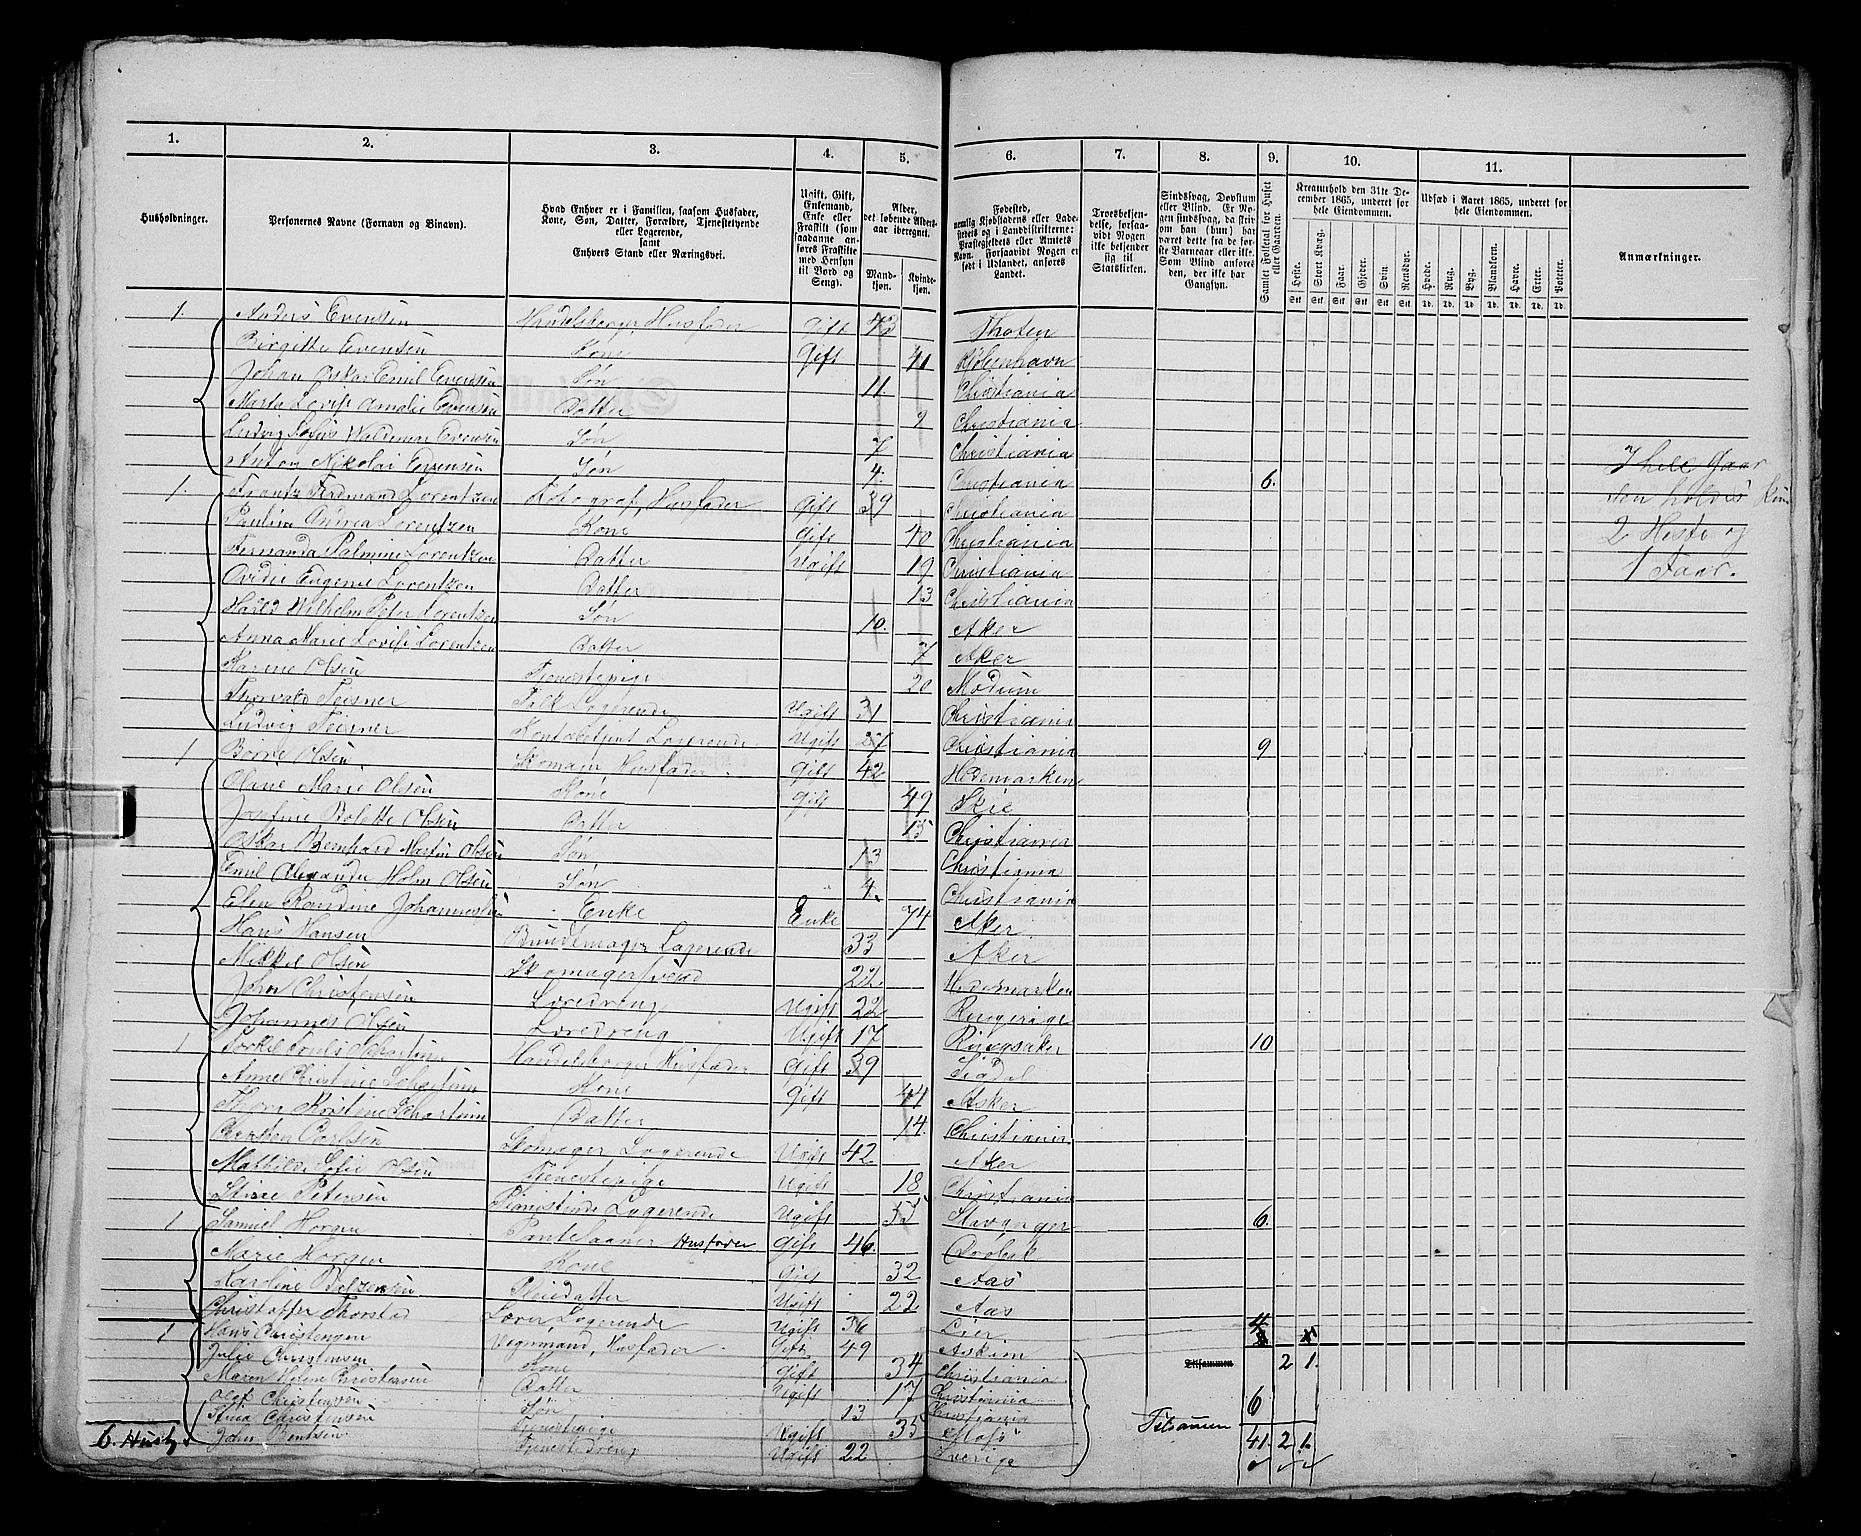 1. 2. 3. 4. 5. 6. 7. 8. 9. 10. 11.
Husholdninger.
Personernes Navne (Fornavn og Binavn).
Hvad Enhver er i Familien, saasom Husfader, Kone, Søn, Datter, Forældre, Tjenestetyende eller Logerende, samt Enhvers Stand eller Næringsvei.
Ugift, Gift, Enkemand, Enke eller Fraskilt (som saadanne anføres Fraskilte med Hensyn til Bord og Seng).
Alder, det løbende Aldersaar iberegnet.
Mandkjøn. Kvindekjøn.
Fødested, nemlig Kjøbstadens eller Ladestedets og i Landdistrikterne: Præstegjeldets eller Amtets Navn. Forsaavidt Nogen er født i Udlandet, anføres Landet.
Troesbekjendelse, forsaavidt Nogen ikke bekjender sig til Statskirken.
Sindssvag, Døvstum eller Blind. Er Nogen sindssvag, da skriv om han (hun) har været dette fra de første Barneaar eller ikke. Som Blind anføres den, der ikke har Gangsyn.
Samlet Folketal for Huset eller Gaarden.
Kreaturhold den 31te December 1865, underet for hele Eiendommen.
Heste. Stort Kvæg. Faar. Gjeder. Svin. Rensdyr.
Stk. Stk. Stk. Stk. Stk. Stk.
Udsæd i Aaret 1865, underet for hele Eiendommen.
Hvede. Rug. Byg. Blandkorn. Havre. Erter. Poteter.
Td. Td. Td. Td. Td. Td. Td.
Anmærkninger.
1. Anders Evensen Handelsborger, Husfader Gift 43 Thoten
Birgitte Evensen Kone Gift 41 Kjøbenhavn
Johan Oskar Emil Evensen Søn 11. Christiania
Marta Lovise Amalie Evensen Datter 9 Christiania
Ludvig Julius Waldemar Evensen Søn 7 Christiania
Anton Nikolai Evensen Søn 4. Christiania 6.
1. Frantz Ferdinand Lorentzen Fotograf, Husfader Gift 39 Christiania
Paulina Andrea Lorentzen Kone Gift 40 Christiania
Fernanda Palmine Lorentzen Datter Ugift 19 Christiania
Ovidie Eugenie Lorentzen Datter 13 Christiania
Wilhelm Peter Lorentzen Søn 10. Aker
Anna Marie Lovise Lorentzen Datter 7 Aker
Karine Olsen Tjenestepige 20 Modum
Thorvald Teisner Logerende Ugift 31 Christiania
Ludvig Teisner Logerende Ugift 27 Christiania 9
1 Børre Olsen Skomager Husfader Gift 42 Hedemarken
Oline Marie Olsen Kone Gift 49 Skie
Josefine Bolette Olsen Datter 15 Christiania
Oskar Bernhard Martin Olsen Søn 13 Christiania
Emil Alexander Holm Olsen Søn 4. Christiania
Elen Randine Enke Enke 74 Aker
Hans Hansen Buntemager Logerende 33 Aker
Mikkel Olsen Skomagersvend 22 Hedemarken
John Christensen Loredreng Ugift 22 Ringerige
Johannes Olsen Loredreng Ugift 17 Ringsaker 10
1 Schartum Handelsborger Husfader Gift 39
Anne Christine Schartum Kone Gift 44 Asker
Kristine Schartum Datter 14. Christiania
Carlsen Skomager Logerende Ugift 42 Aker
Mathilde Sofie Olsen Tjenestepige Ugift 18 Christiania
Stine Petersen Logerende Ugift 55 Stavanger 6.
1 Samuel Horgen Pantelaaner Husfader Gift 46. Drøbak
Marie Horgen Kone Gift 32 Aas
Karoline Pleiedatter Ugift 22 Aas
Christoffer Thorsted Lærer Logerende Ugift 36 Lier 4
1 Hans Christensen Vognmand, Husfader Gift 49 Askim
Julie Christensen Kone Gift 34 Christiania
Maren Christensen Datter Ugift 17 Christiania
Olaf Christensen Søn 13 Christiania 6
Stina Christensen Tjenestepige Ugift 35 Moss
John Bentsen Tjenestedreng Ugift 22 Sverige
6. Husly
I hele Gaarden holdes kun
2 Heste og
1 Faar.
Tilsammen 2 1.
Tilsammen 41. 2 1.